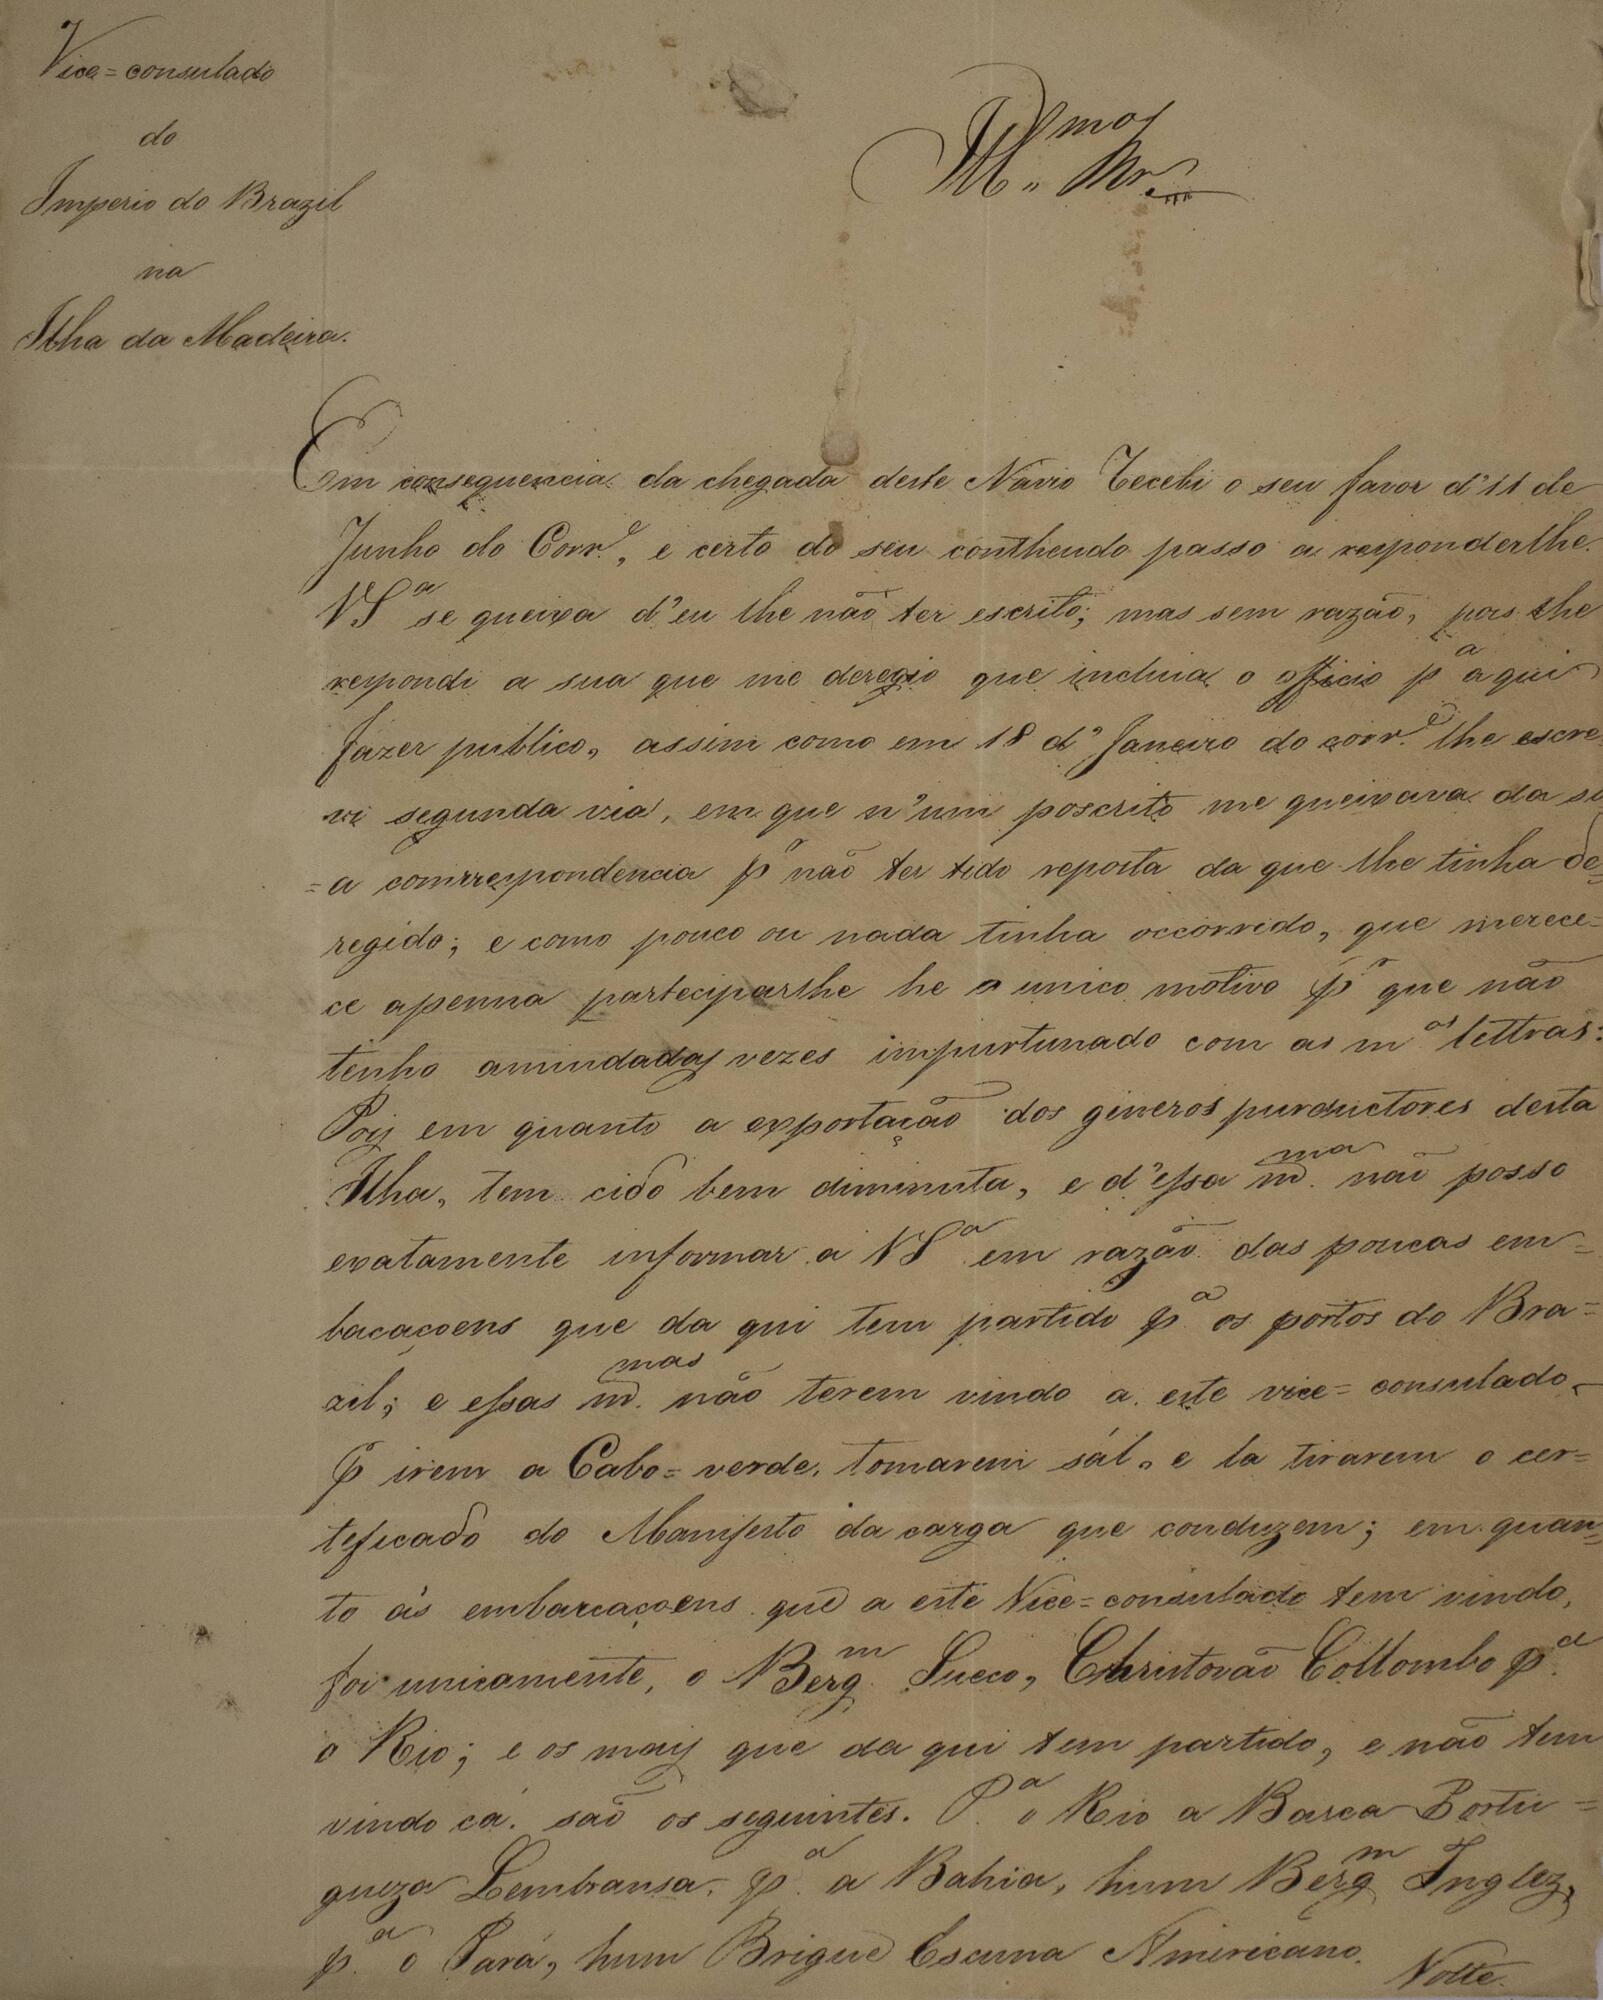 Vice=consulado
do
Imperio do Brazil
na
Ilha da Madeira.
Ill.mo Snr.
Em consequencia da chegada deste Navio Recebi o seu favor d'11 de
Junho do Corr.e, e certo do seu conthendo passo a responderlhe.
VS.a se queixa d'eu lhe não ter escrito; mas sem razão, pois lhe
respondi a sua que me deregio que incluia o officio p.a aqui
fazer publico, assim como em 18 d'Janeiro do corr.e lhe escre
vi segunda via, em que n'um poscrito me queixava da su
=a comrrespondencia p.r não ter tido reposta da que lhe tinha de=
regido; e como pouco ou nada tinha occorrido, que merece=
ce apenna parteciparlhe he o unico motivo p.r que não
tenho amindadas vezes impurtunado com as m.as lettras:
Pois em quanto a exportação dos gineros purductores desta
Ilha, tem cido bem diminuta, e d'essa m.ma não posso
exatamente informar a VS.a em razão das poucas em=
bacaçoens que da qui tem partido p.a os portos do Bra=
zil; e essas m.mas não terem vindo a este vice=consulado
p.r irem a Cabo=verde, tomarem sál, e la tirarem o cer=
teficado do Manifesto da carga que conduzem; em quan=
to ás embarcaçoens que a este Vice=consulado tem vindo,
foi unicamente, o Berg.m Sueco, Christovão Collombo p.a
o Rio; e os mais que da qui tem partido, e não tem
vindo cá são os seguintes. P.a o Rio a Barca Portu=
gueza Lembransa, p.a a Bahia, hum Berg.m Inglez,
p.a o Pará, hum Brigue Escuna Americano.
Volte.